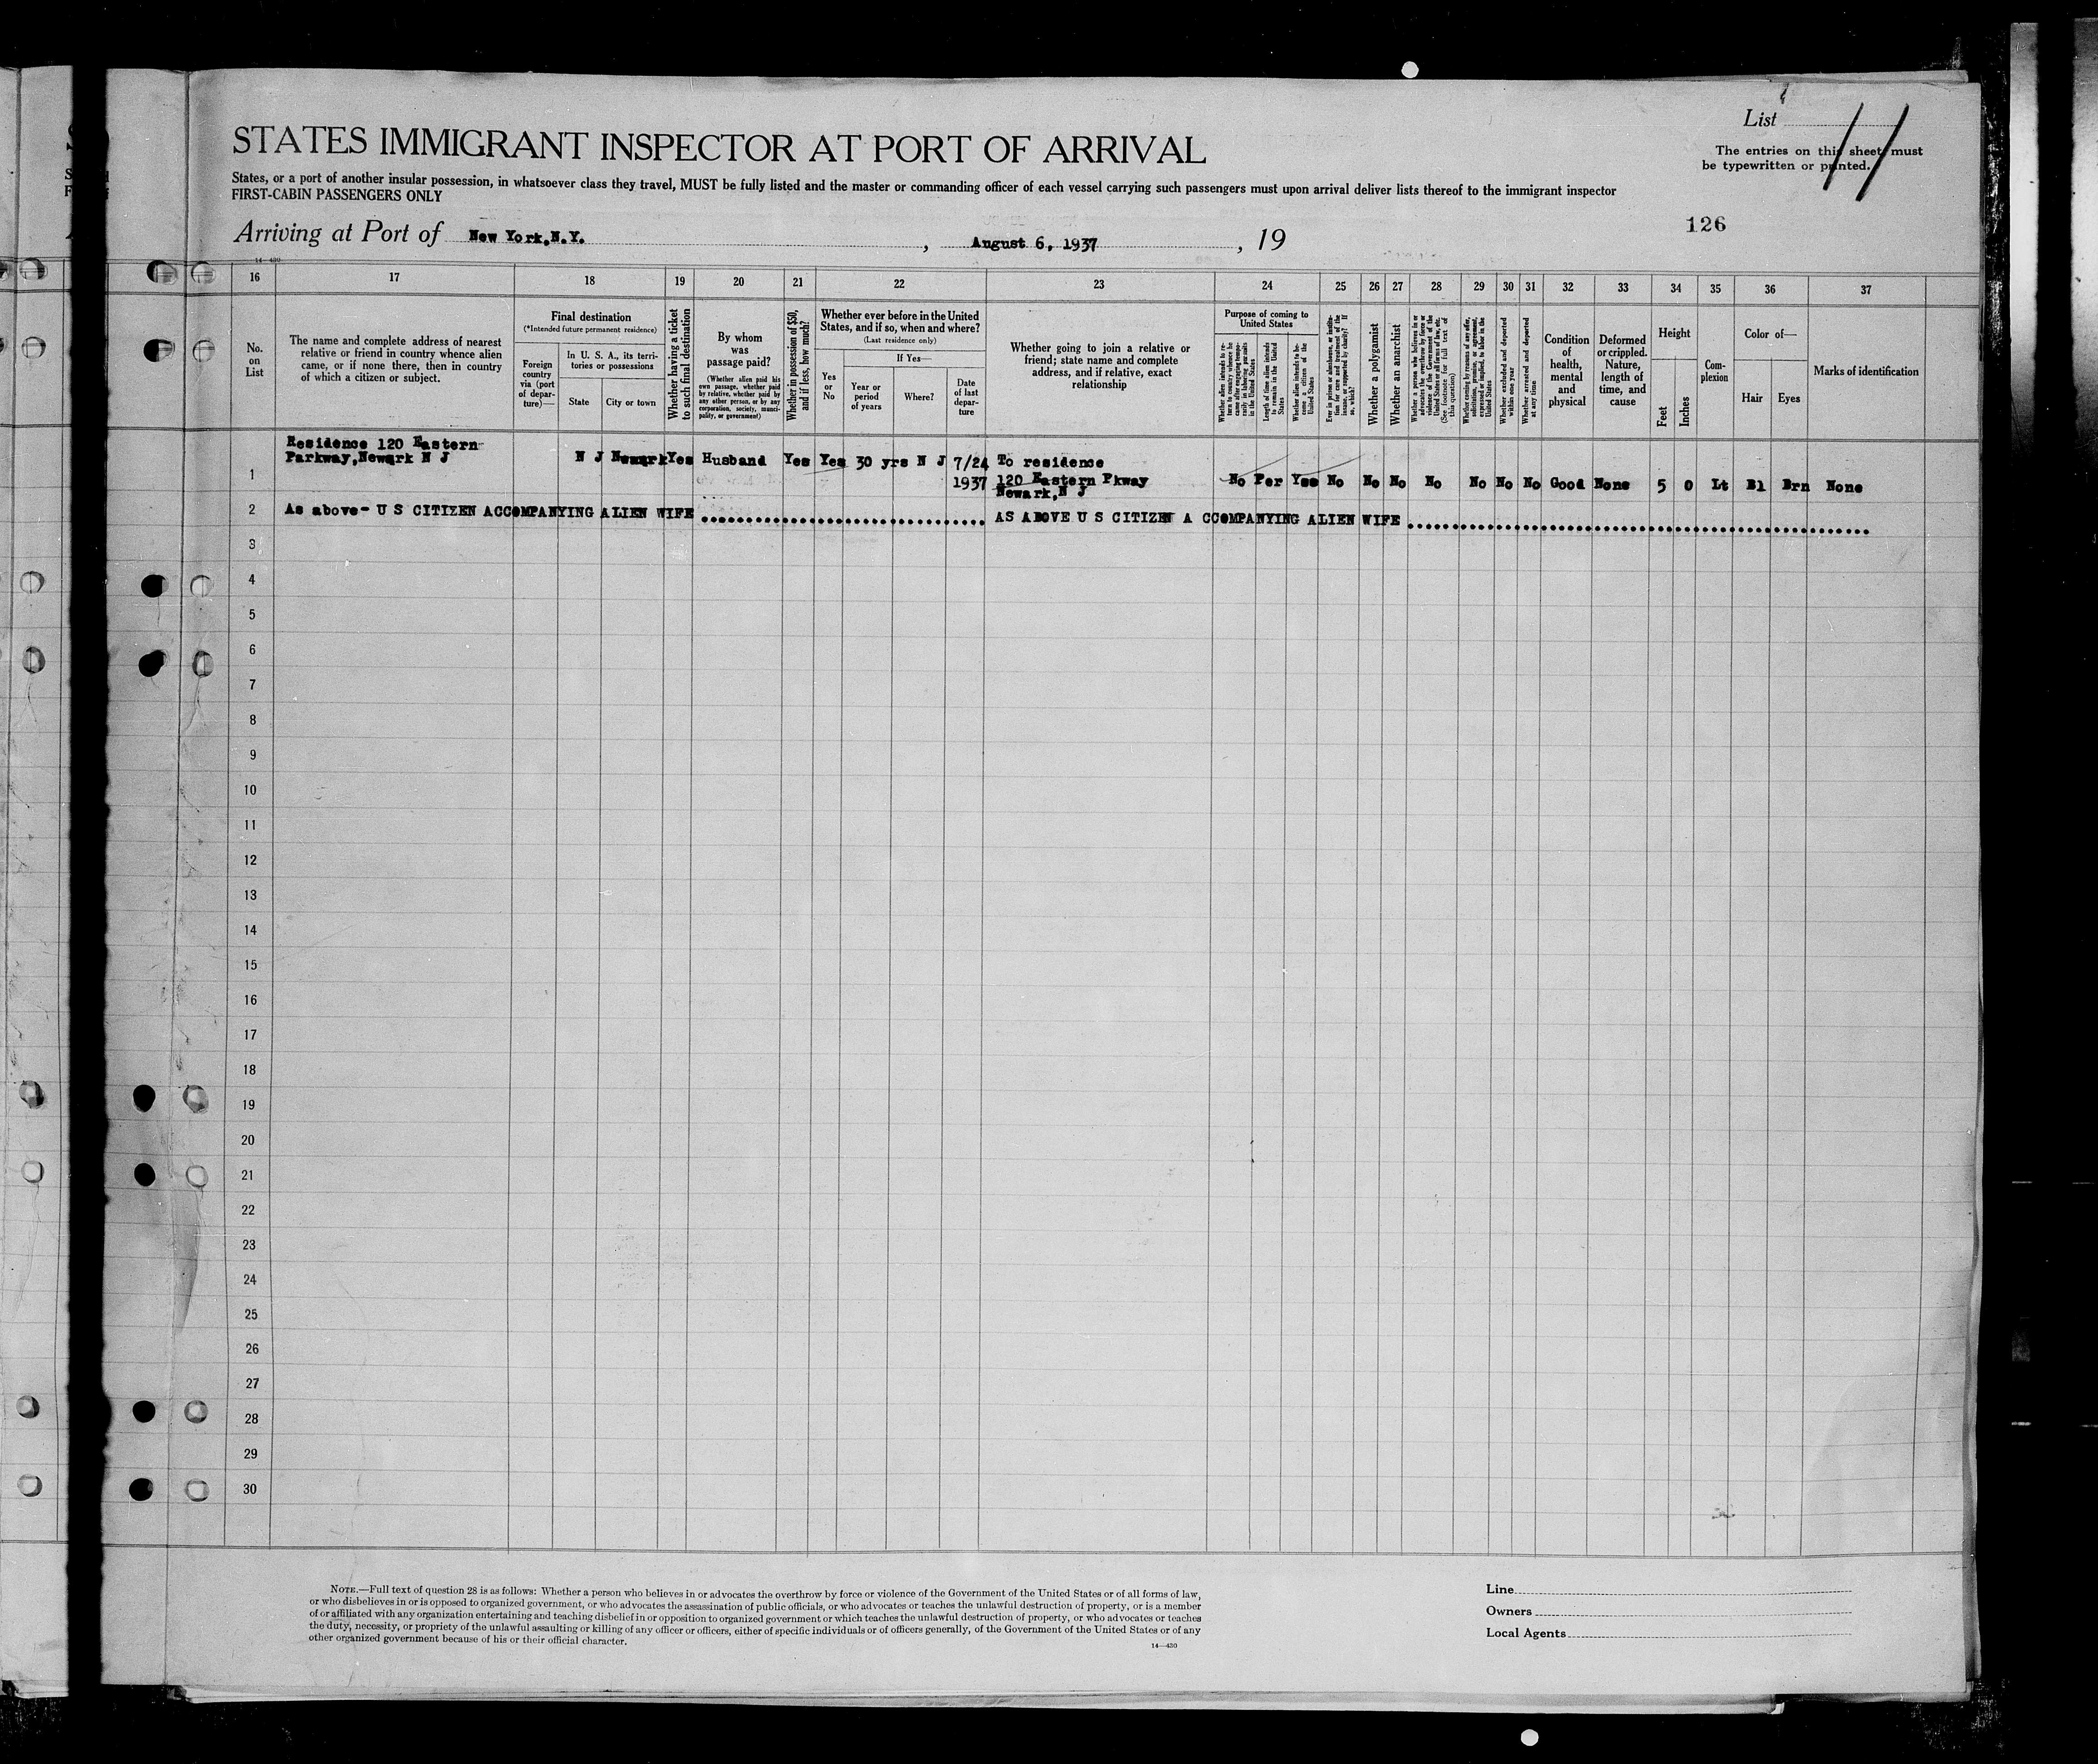 List
STATES IMMIGRANT INSPECTOR AT PORT OF ARRIVAL
The entries on this sheet must
be typewritten or printed.
States, or a port of another insular possession, in whatsoever class they travel, MUST be fully listed and the master or commanding officer of each vessel carrying such passengers must upon arrival deliver lists thereof to the immigrant inspector
FIRST-CABIN PASSENGERS ONLY
126
Arriving at Port of New York,N.Y. , August 6, 1937 , 19
14—430
16 17 18 19 20 21 22 23 24 25 26 27 28 29 30 31 32 33 34 35 36 37
No.
on
List
The name and complete address of nearest
relative or friend in country whence alien
came, or if none there, then in country
of which a citizen or subject.
Final destination
(*Intended future permanent residence)
Foreign
country
via (port
of depar-
ture)—
In U. S. A., its terri-
tories or possessions
State
City or town
Whether having a ticket
to such final destination
By whom
was
passage paid?
(Whether alien paid his
own passage, whether paid
by relative, whether paid by
any other person, or by any
corporation, society, munici-
pality, or government)
Whether in possession of $50,
and if less, how much?
Whether ever before in the United
States, and if so, when and where?
(Last residence only)
Yes
or
No
If Yes—
Year or
period
of years
Where?
Date
of last
depar-
ture
Whether going to join a relative or
friend; state name and complete
address, and if relative, exact
relationship
Purpose of coming to
United States
Whether alien intends to re-
turn to country whence he
came after engaging tempo-
rarily in laboring pursuits
in the United States
Length of time alien intends
to remain in the United
States
Whether alien intends to be-
come a citizen of the
United States
Ever in prison or almshouse, or institu-
tion for care and treatment of the
insane, or supported by charity? If
so, which?
Whether a polygamist
Whether an anarchist
Whether a person who believes in or
advocates the overthrow by force or
violence of the Government of the
United States or all forms of law, etc.
(See footnote for full text of
this question)
Whether coming by reasons of any offer,
solicitation, promise, or agreement,
expressed or implied, to labor in the
United States
Whether excluded and deported
within one year
Whether arrested and deported
at any time
Condition
of
health,
mental
and
physical
Deformed
or crippled.
Nature,
length of
time, and
cause
Height
Feet
Inches
Com-
plexion
Color of—
Hair
Eyes
Marks of identification
Residence 120 Eastern
Parkway,Newark N J N J Newark Yes Husband Yes Yes 30 yrs N J 7/24 To residence
1 1937 120 Eastern Pkway No Per Yes No No No No No No No Good None 5 0 Lt Bl Brn None
Newark,N J
2 As above- U S CITIZEN ACCOMPANYING ALIEN WIFE AS ABOVE U S CITIZEN A CCOMPANYING ALIEN WIFE
3
4
5
6
7
8
9
10
11
12
13
14
15
16
17
18
19
20
21
22
23
24
25
26
27
28
29
30
NOTE.—Full text of question 28 is as follows: Whether a person who believes in or advocates the overthrow by force or violence of the Government of the United States or of all forms of law,
or who disbelieves in or is opposed to organized government, or who advocates the assassination of public officials, or who advocates or teaches the unlawful destruction of property, or is a member
of or affiliated with any organization entertaining and teaching disbelief in or opposition to organized government or which teaches the unlawful destruction of property, or who advocates or teaches
the duty, necessity, or propriety of the unlawful assaulting or killing of any officer or officers, either of specific individuals or of officers generally, of the Government of the United States or of any
other organized government because of his or their official character.
14—430
Line
Owners
Local Agents